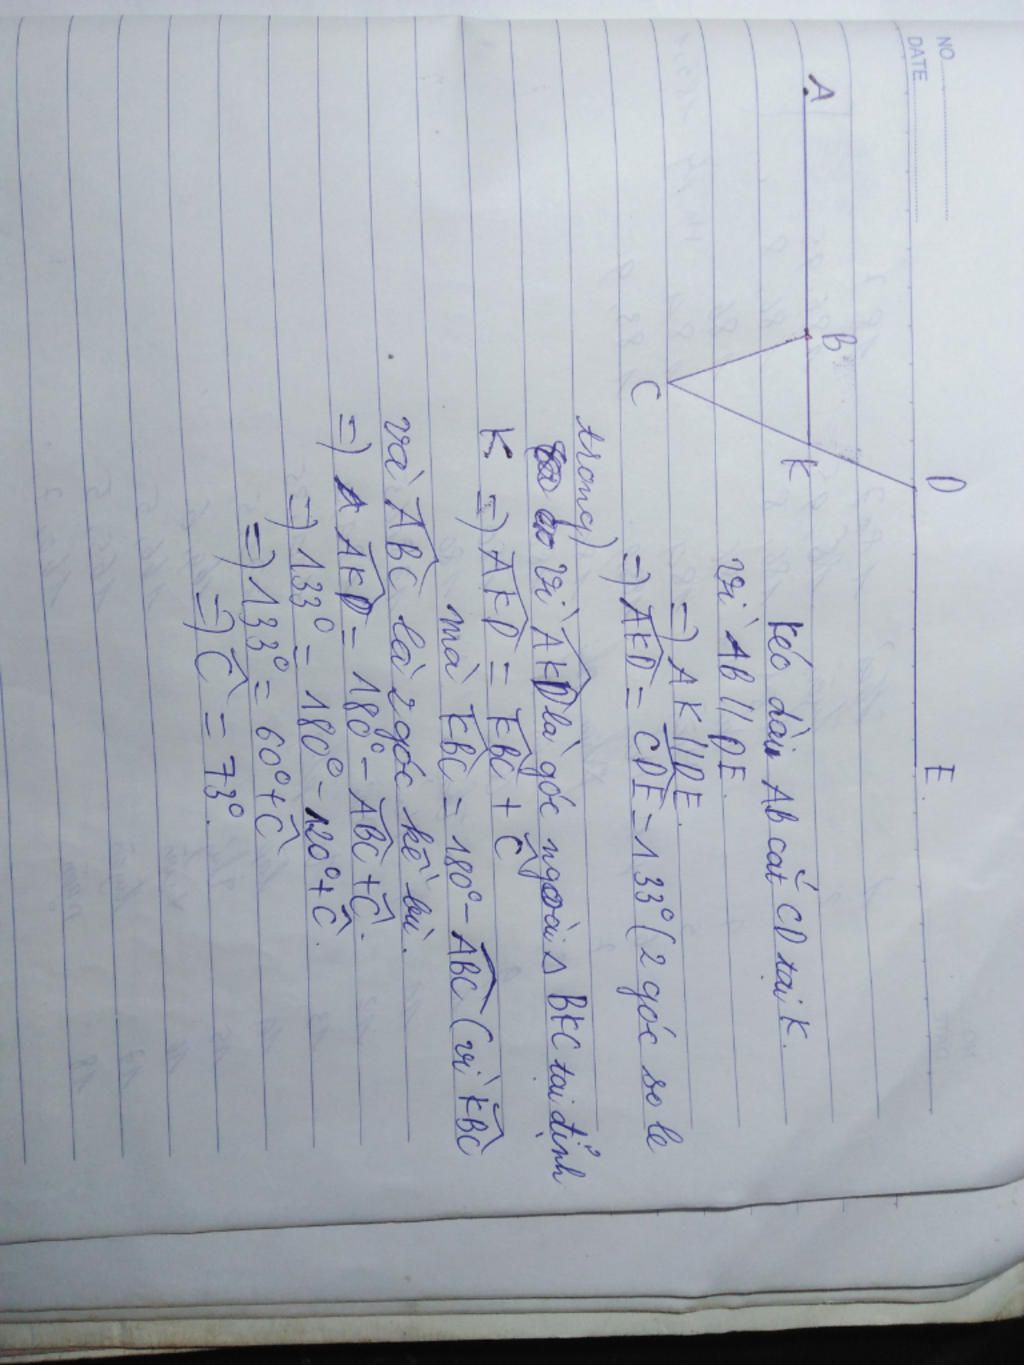 NO
DATE
D
E.
A
B
K
C
Kéo dài AB cắt CD tại K.
Vì AB // DE.
=) AK // DE.
=) AKD = CDE = 133° (2 góc so le
trong)
Vì AKD là góc ngoài Δ BKC tại đỉnh
K =) AKD = KBC + C
mà KBC = 180° - ABC (vì KBC
và ABC là 2 góc kề bù.
=) AKD = 180° - ABC + C.
=) 133° = 180° - 120° + C.
=) 133° = 60° + C
=) C = 73°.